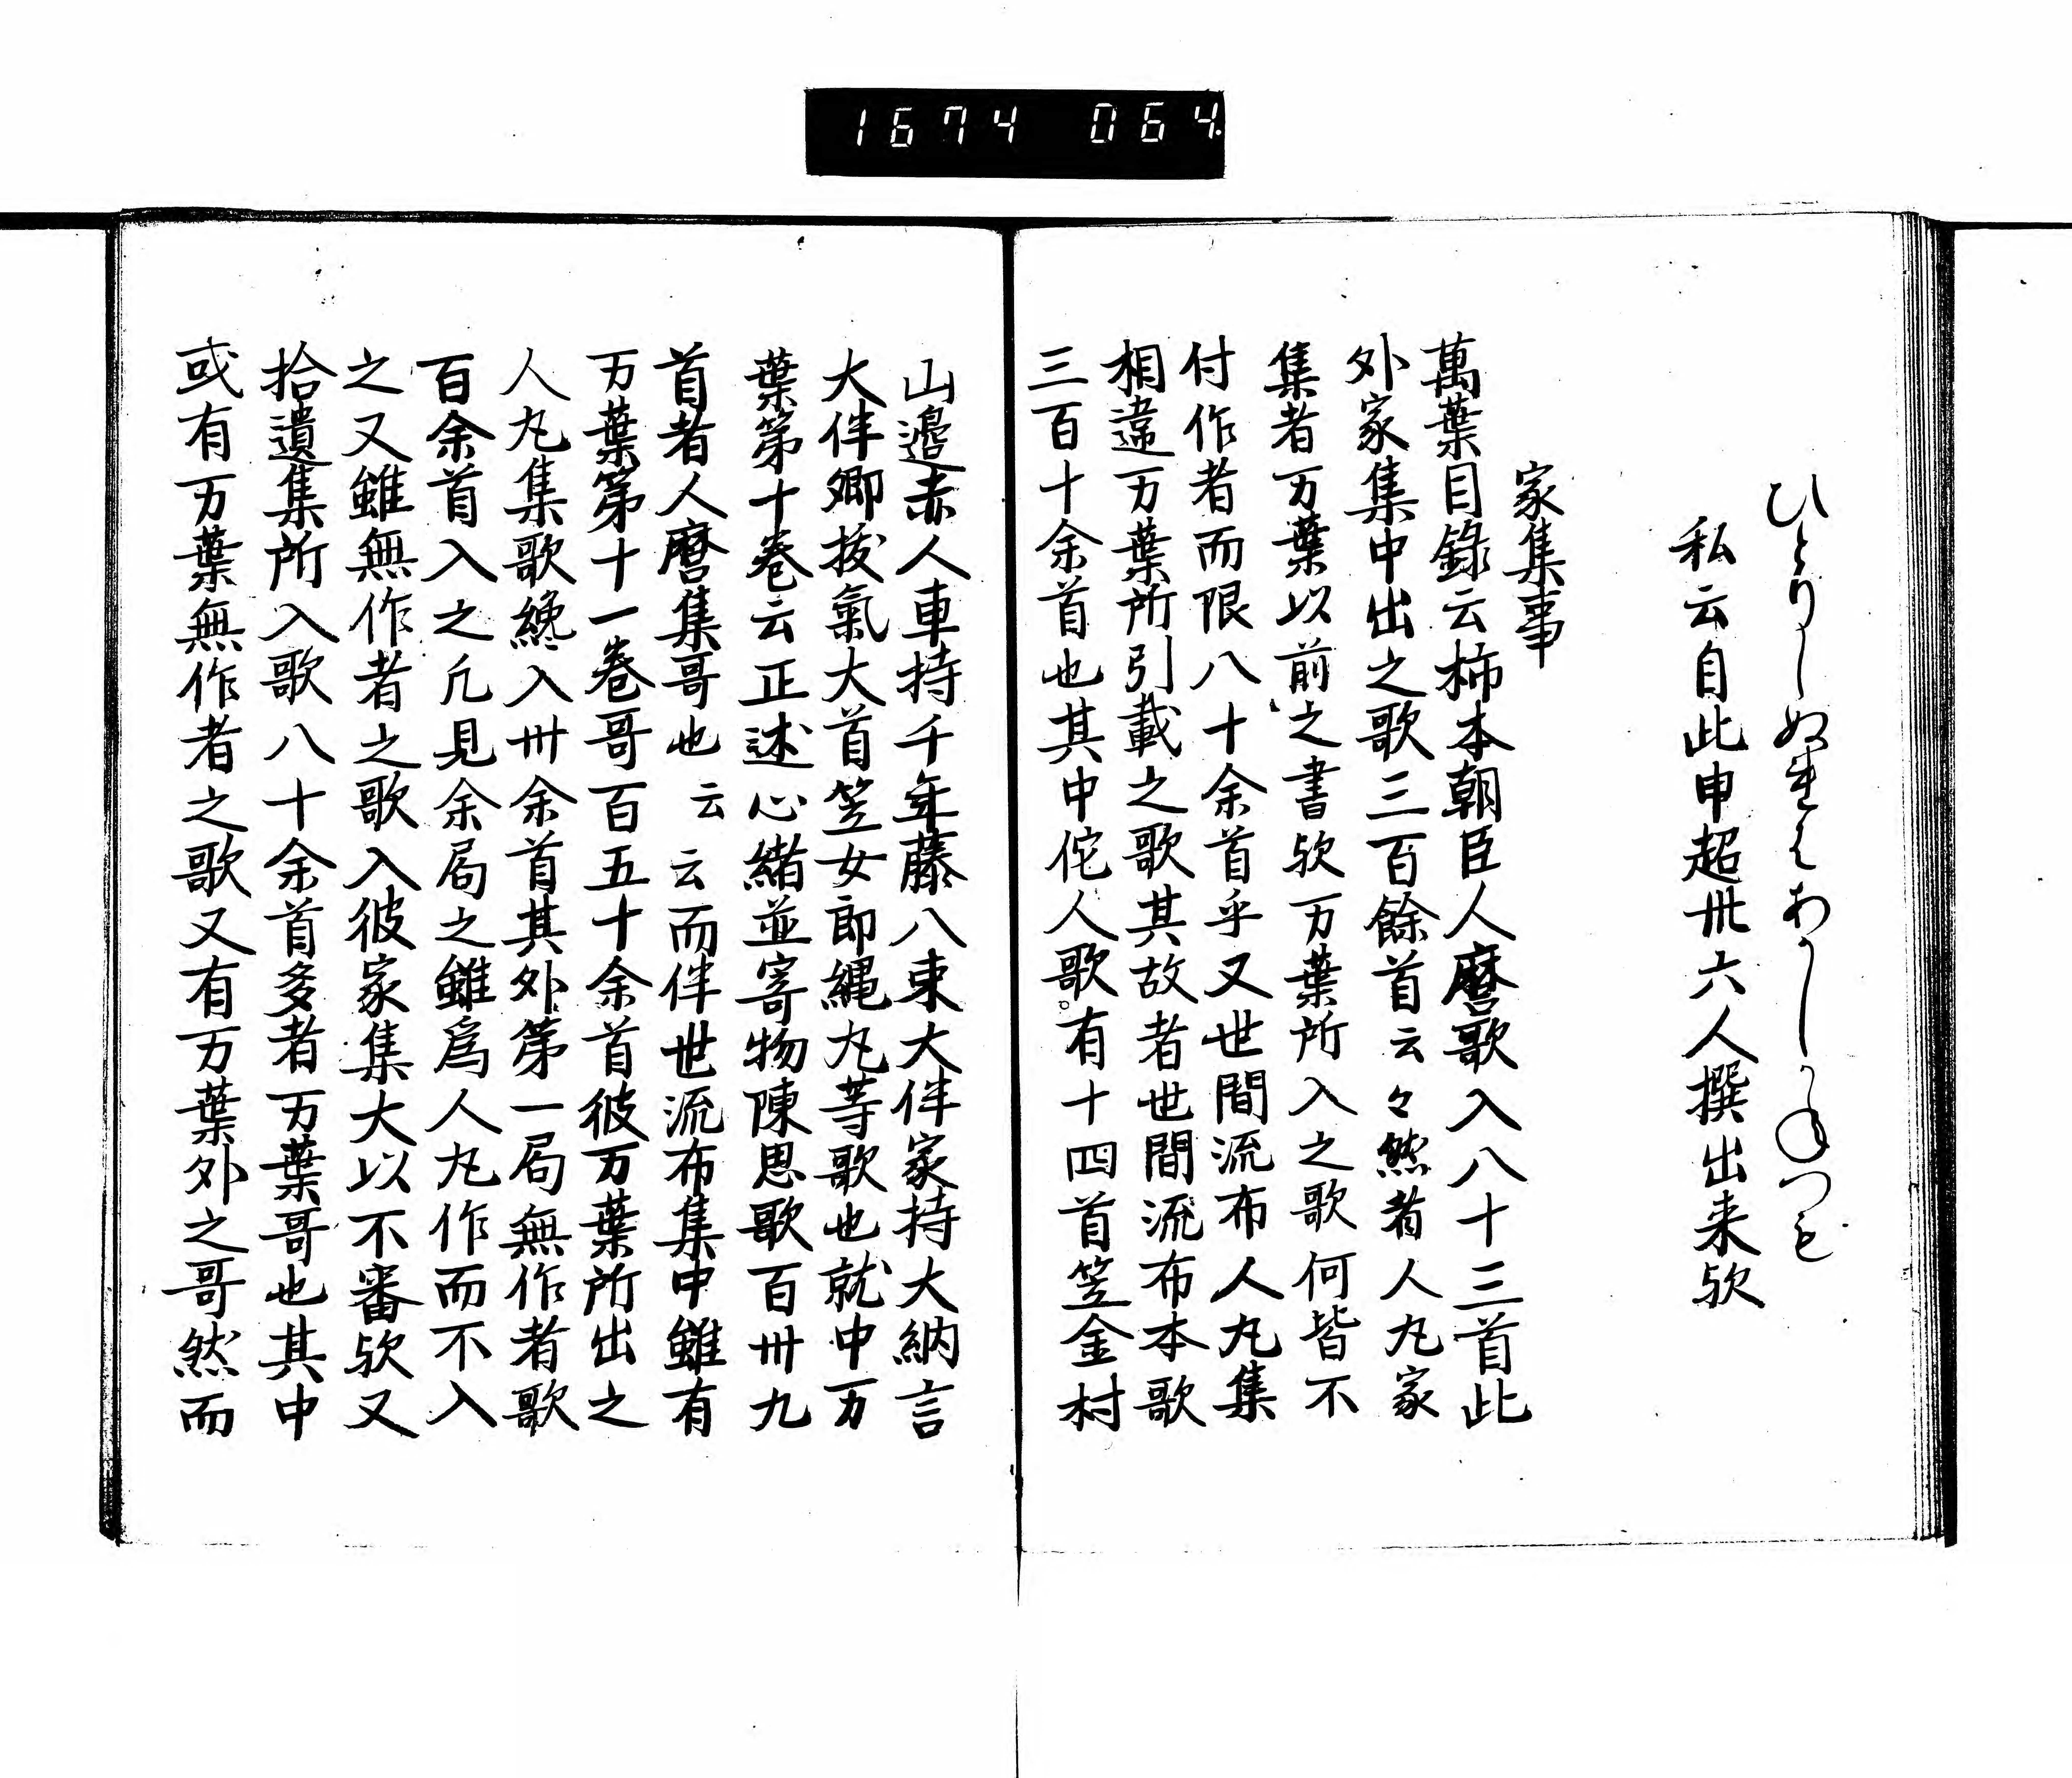 1674 064
ひとりしぬれはあかしかねつも
私云自此申超卅六人撰出来歟
家集事
萬葉目録云柿本朝臣人麿歌入八十三首此
外家集中出之歌三百餘首云々然者人丸家
集者万葉以前之書歟万葉所入之歌何皆不
付作者而限八十余首乎又世間流布人丸集
相違万葉所引載之歌其故者世間流布本歌
三百十余首也其中佗人歌有十四首笠金村
山邊赤人車持千年藤八束大伴家持大納言
大伴卿拔氣大首笠女郎縄丸等歌也就中万
葉第十巻云正述心緒並寄物陳思歌百卅九
首者人麿集哥也云云而伴世流布集中雖有
万葉第十一巻哥百五十余首彼万葉所出之
人丸集歌纔入卅余首其外第一局無作者歌
百余首入之凢見余局之雖為人丸作而不入
之又雖無作者之歌入彼家集大以不審歟又
拾遺集所入歌八十余首多者万葉哥也其中
或有万葉無作者之歌又有万葉外之哥然而